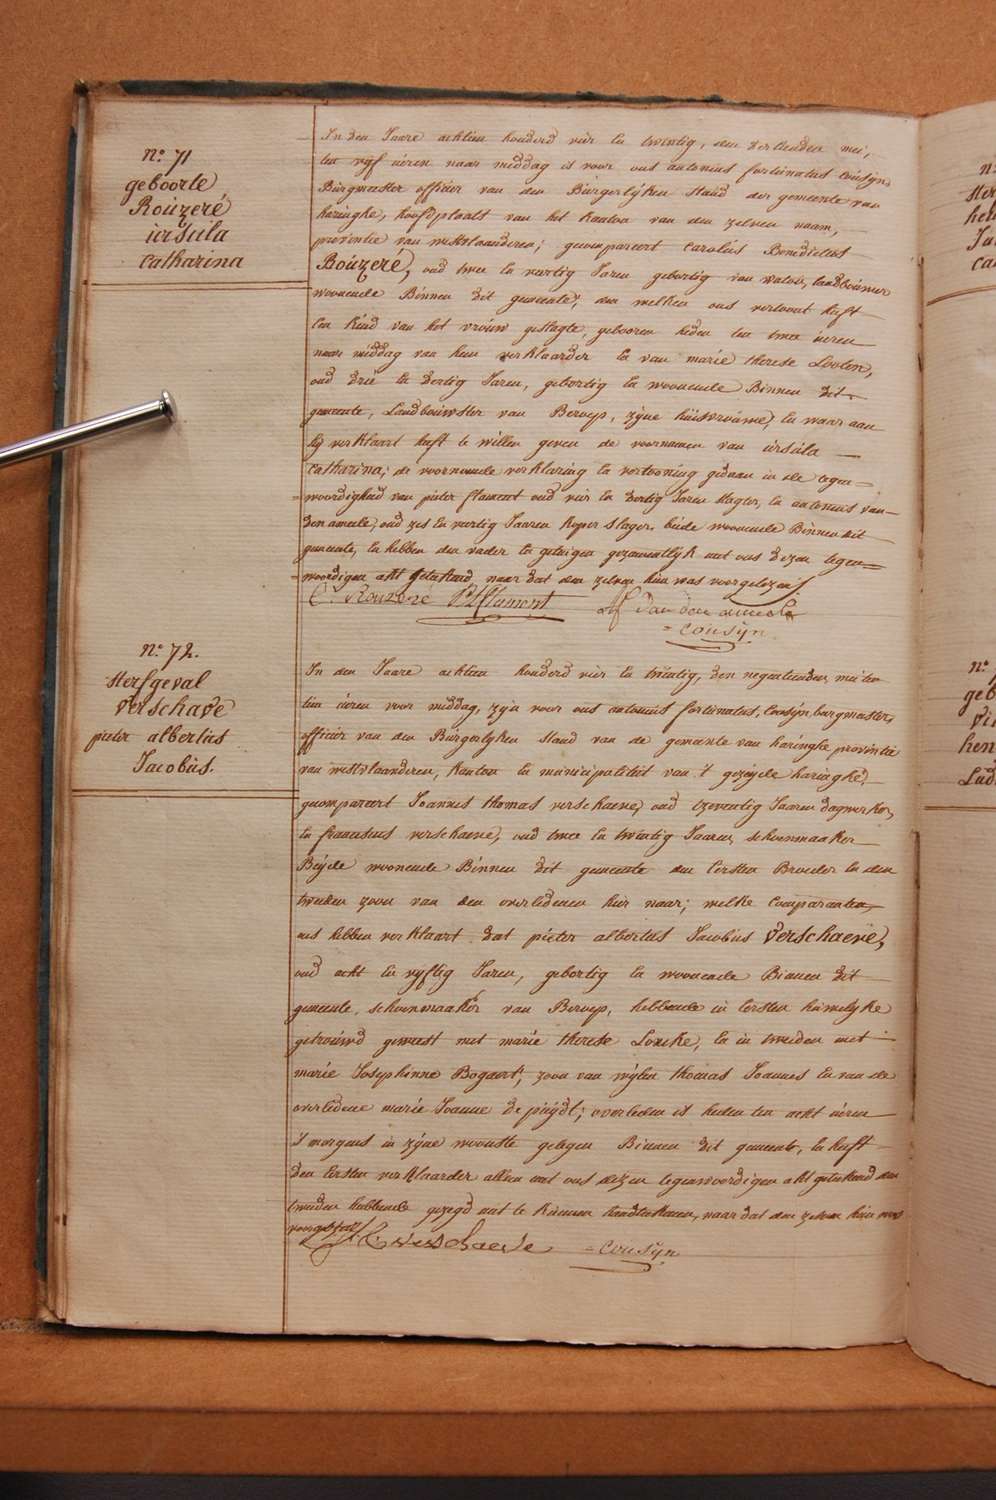 N.º 71
geboorte,
Roúzeré
úrsúla
catharina
In den Jaare achtien honderd vier en twintig, den derthienden mei,
ten vyf úúren naar middag is voor ons antonius fortúnatús Coúsÿn,
Búrgmeester officier van den Búrgerlÿken Stand der gemeente van
haringhe, hoofdplaats van het kanton van den zelven naam,
provintie van westvlaanderen; gecompareert Carolús Benedictús
Roúzeré, oud twee en veertig Jaren gebortig van watou, landboúwer
woonende Binnen dit gemeente, den welken ons vertoont heeft
Een kind van het vroúw geslagte, gebooren heden ten twee úúren
naar middag van hem verklaarder en van marie therese Looten,
oud drie en dertig Jaren, gebortig en woonende Binnen dit
gemeente, Landboúwster van Beroep, zÿne húisvroúwe, en waar aan
hÿ verklaart heeft te willen geven de voornamen van úrsúla
Catharina; de voornoemde verklaring en vertooning gedaan in de tegen=
=woordigheid van pieter flament oud vier en dertig Jaren slagter, en antonius van=
den ameele, oud zes en veertig Jaaren koper slager, beide woonende Binnen dit
gemeente, en hebben den vader en getúigen gezaementlÿk met ons dezen tegen=
=woordigen akt geteekend, naar dat den zelven hún was voorgelezen
C. Rouzere P. Flament A F Van den ameele
= Coúsÿn
N.º 72.
Sterfgeval
Verschave
pieter albertús
Jacobús.
In den Jaare achtien honderd vier en twintig, den negentienden mei ten
tien úúren voor middag, zÿn voor ons antoniús fortúnatús, Coúsÿn burgmeester,
officier van den Búrgerlÿken Stand van de gemeente van haringhe provintie
van westvlaanderen, kanton en múnicipaliteit van 't gezeÿde haringhe,
gecompareert Joannes thomas verschaeve, oud tzeventig Jaaren dagwerker,
en franciscus verschaeve, oud twee en twintig Jaaren, schoenmaaker
Beÿde woonende Binnen dit gemeente den eersten Broeder en den
tweeden zoon van den overledenen hier naar; welke comparanten
ons hebben verklaart dat pieter albertús Jacobús Verschaeve,
oud acht en vÿftig Jaren, gebortig en woonende Binnen dit
gemeente, schoenmaaker van Beroep, hebbende in eersten húwelÿke
getroúwd geweest met marie therese Loncke, en in tweeden met
marie Josephinne Bogaert, zoon van wÿlen thomas Joannes en van de
overledene marie Joanne de púÿdt; overleden is heden ten acht úúren
's morgens in zÿne woonste gelegen Binnen dit gemeente, en heeft
den eersten verklaarder alleen met ons dezen tegenwoordigen akt geteekend den
tweeden hebbende gezegd niet te kúnnen handteekenen, naar dat den zelven hún was
voorgelezen
Verschaeve = Coúsÿn
N.º